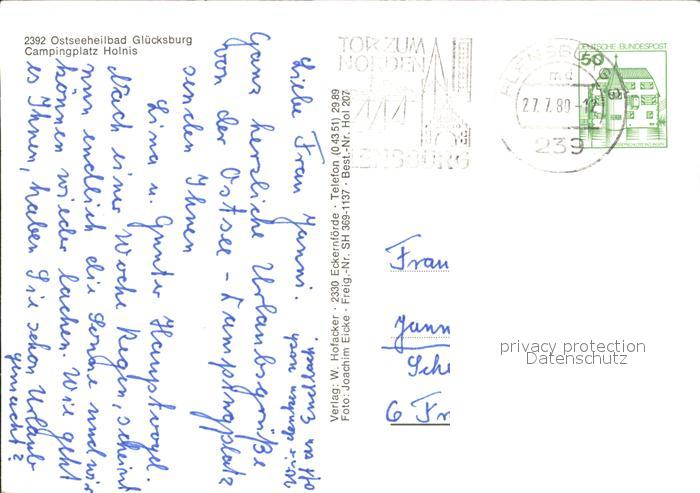 2392 Ostseeheilbad Glücksburg
Campingplatz Holnis
TOR ZUM
NORDEN
FLENSBURG
FLENSBURG
md
27.7.80-12
239
DEUTSCHE BUNDESPOST
50
Liebe Frau Janni.
Ganz herzliche Urlaubsgrüße
von der Ostsee-Campingplatz
senden Ihnen
Lina u. Günter Hauptvogel.
Nach einer Woche Regen, scheint
nun endlich die Sonne und wir
können wieder lachen. Wie geht
es Ihnen, haben Sie schon Urlaub
gemacht?
Verlag: W. Hofacker · 2330 Eckernförde · Telefon (0 43 51) 29 89
Foto: Joachim Eicke · Freig.-Nr. SH 369-1137 · Best.-Nr. Hol 207
Frau
Jann
Sche
6 Fr
privacy protection
Datenschutz